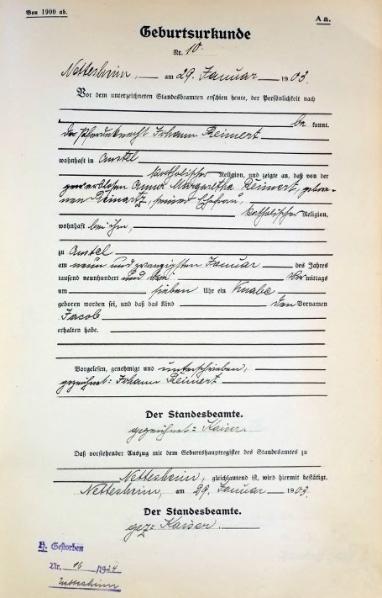 Von 1900 ab.
A a.
Geburtsurkunde
Nr. 10.
Nettersheim, am 29. Januar 1903
Vor dem unterzeichneten Standesbeamten erschien heute, der Persönlichkeit nach
be kannt,
der Pferdeknecht Johann Reinert
wohnhaft in
katholischer Religion, und zeigte an, daß von der
gewerblosen Anna Margaretha Reinert, gebore-
nen seiner Ehefrau,
katholischer Religion,
wohnhaft bei ihm,
zu
am neun und zwanzigsten Januar des Jahres
tausend neunhundert und drei Vor mittags
um sieben Uhr ein Knabe
geboren worden sei, und daß das Kind den Vornamen
Jacob
erhalten habe.
Vorgelesen, genehmigt und unterschrieben,
gezeichnet: Johann Reinert
Der Standesbeamte.
gezeichnet: Kaiser.
Daß vorstehender Auszug mit dem Geburtshauptregister des Standesamtes zu
Nettersheim, gleichlautend ist, wird hiermit bestätigt.
Nettersheim, am 29. Januar 1903
Der Standesbeamte.
gez: Kaiser.
Gestorben
Nr. 16
Nettersheim